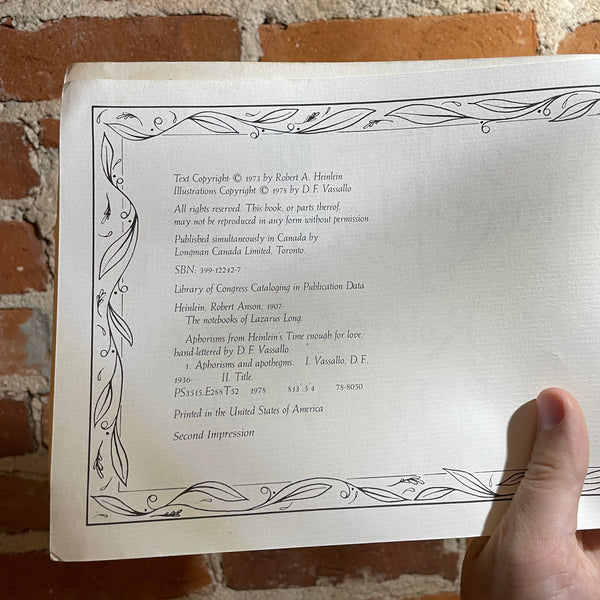 Text Copyright © 1973 by Robert A. Heinlein
Illustrations Copyright © 1978 by D. F. Vassallo
All rights reserved. This book, or parts thereof,
may not be reproduced in any form without permission.
Published simultaneously in Canada by
Longman Canada Limited, Toronto.
SBN: 399-12242-7
Library of Congress Cataloging in Publication Data
Heinlein, Robert Anson, 1907-
The notebooks of Lazarus Long.
Aphorisms from Heinlein's Time enough for love,
hand-lettered by D. F. Vassallo.
1. Aphorisms and apothegms. I. Vassallo, D. F.,
1936- II. Title.
PS3515.E288T52 1978 813'.5'4 78-8050
Printed in the United States of America
Second Impression